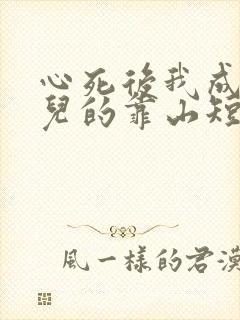 心死後我成
兒的靠山短
風一樣的君漢